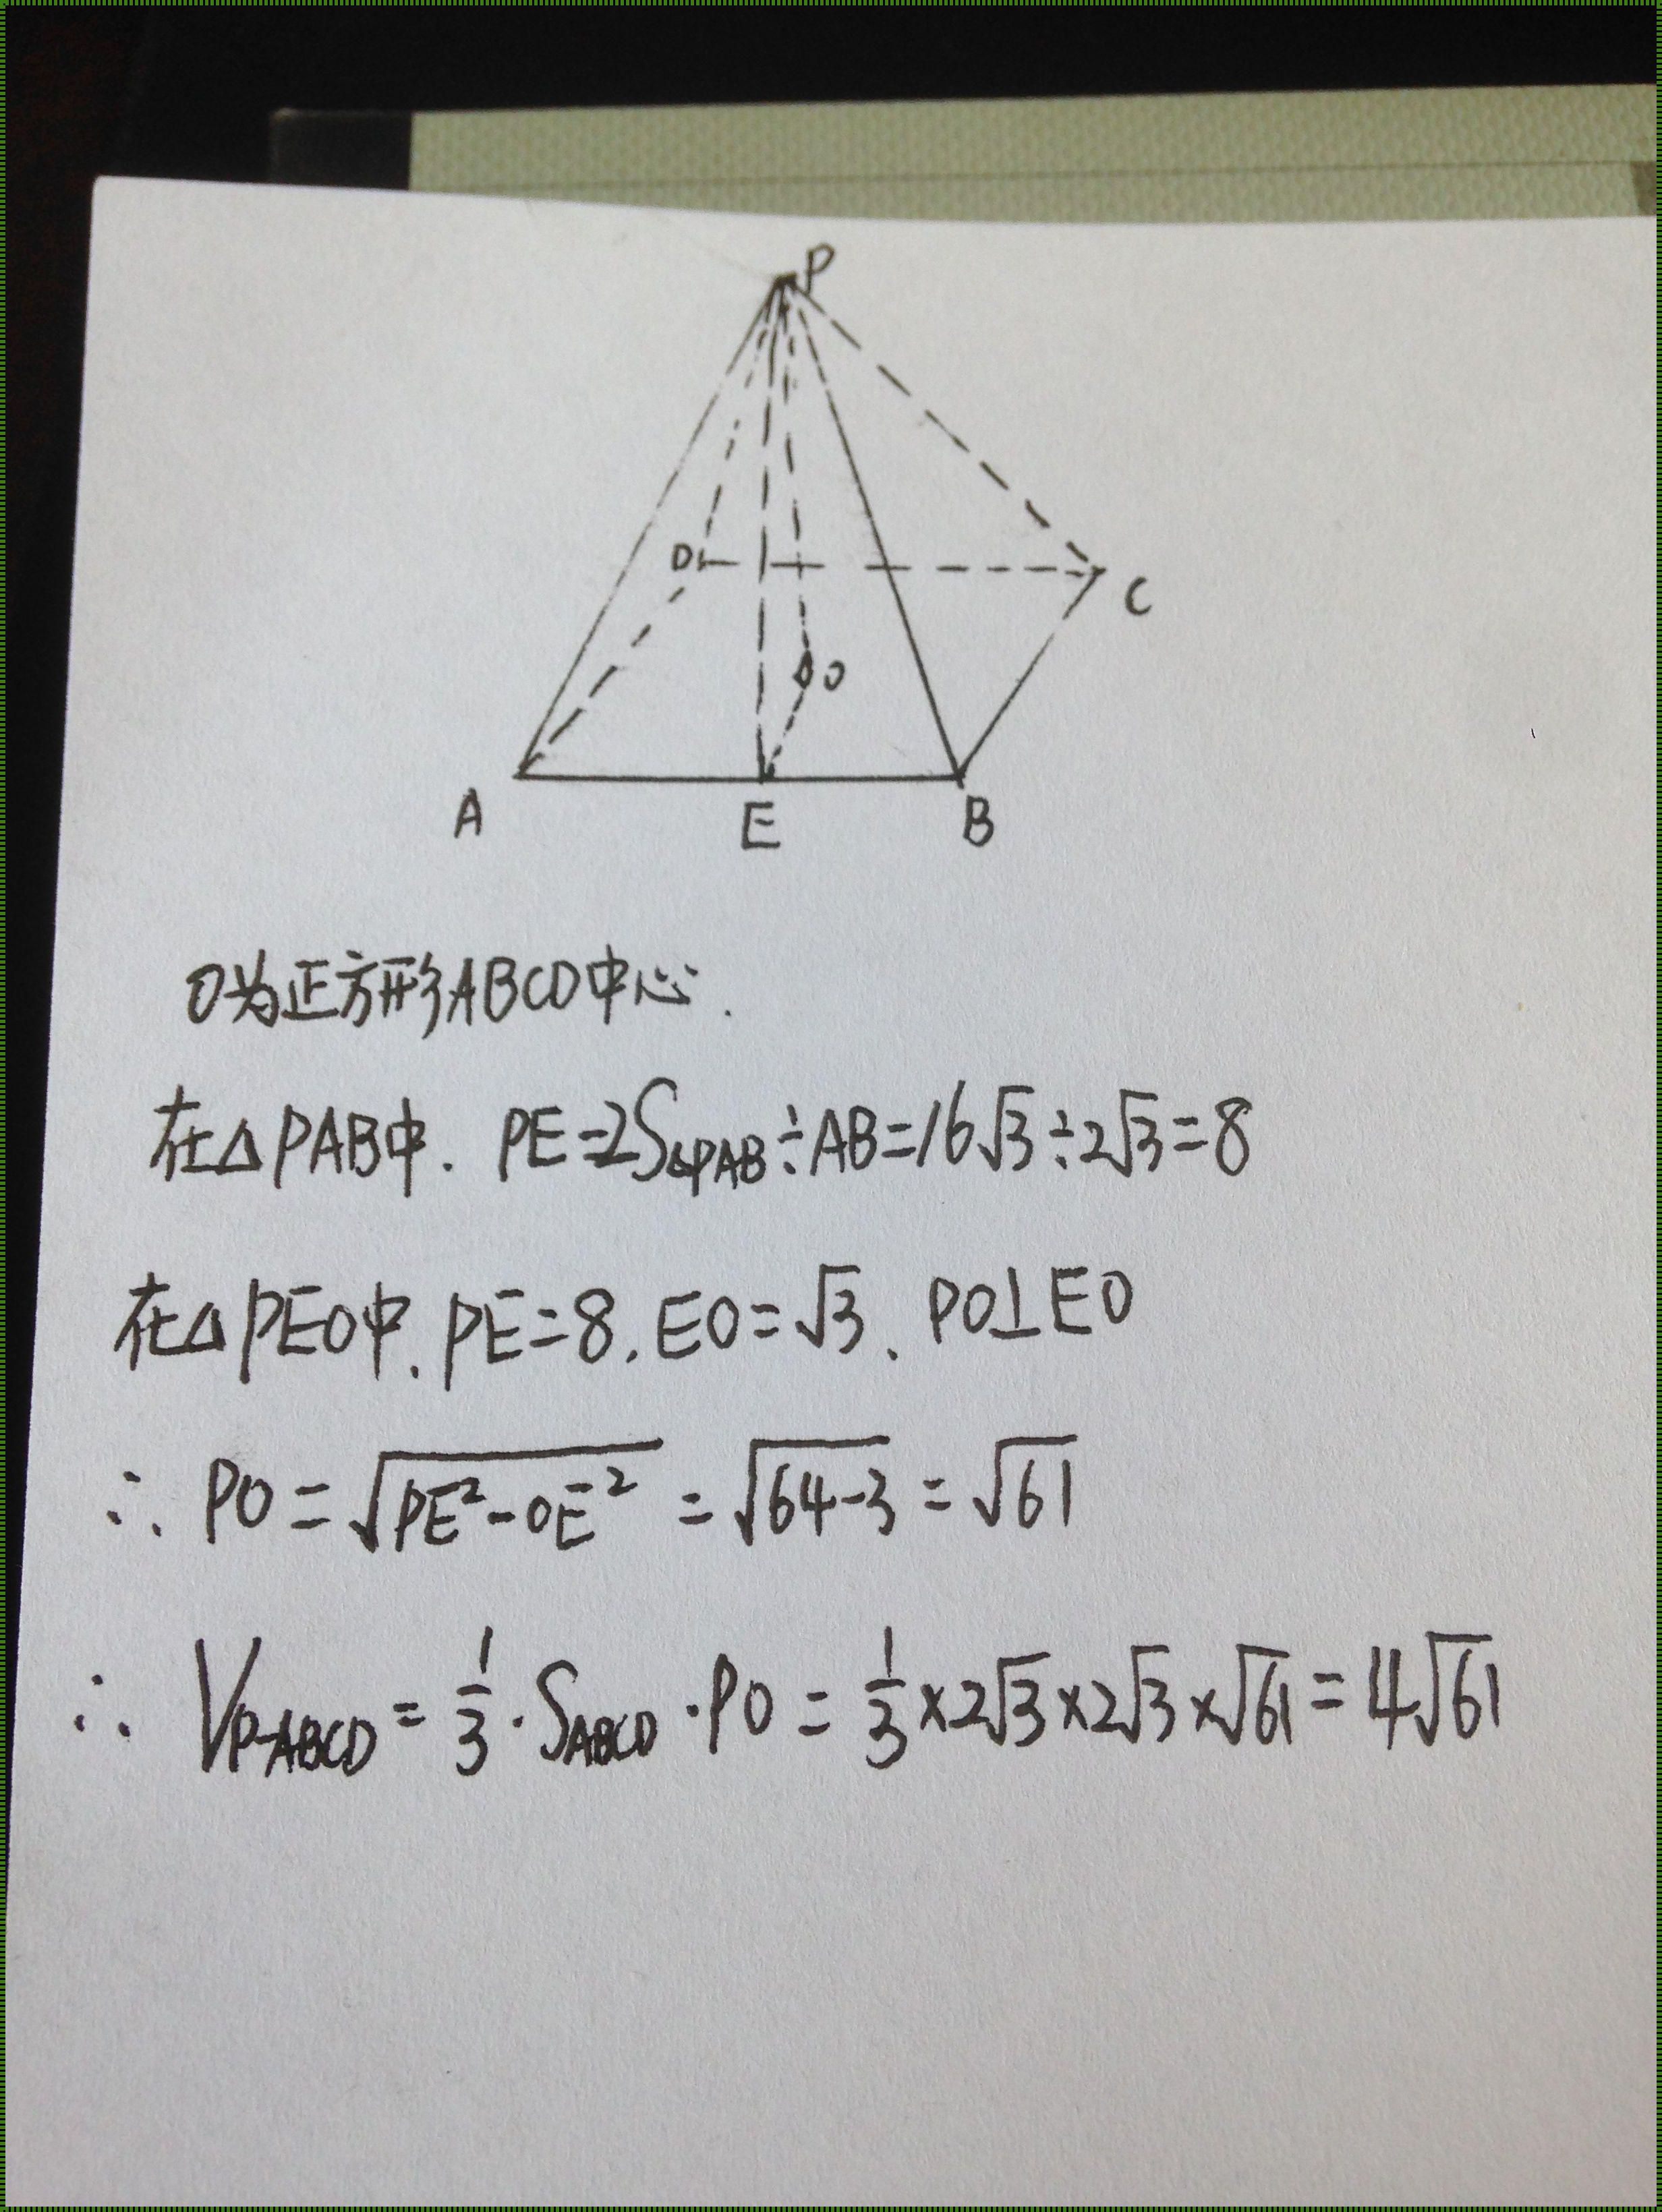 P
D
C
O
A
E
B
O为正方形ABCD中心.
在△PAB中. PE=2S△PAB÷AB=16√3÷2√3=8
在△PEO中. PE=8. EO=√3. PO⊥EO
∴ PO=√(PE²-OE²)=√(64-3)=√61
∴ VP-ABCD=1/3·SABCD·PO=1/3×2√3×2√3×√61=4√61